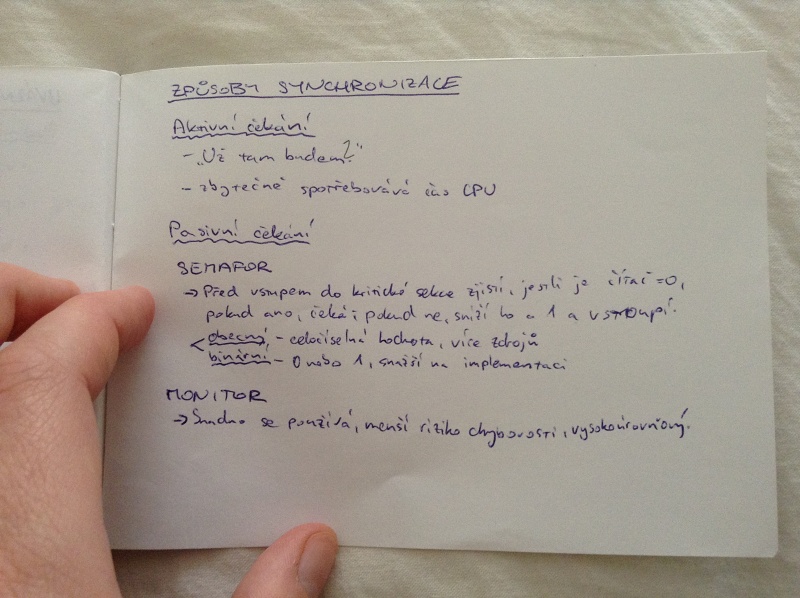 ZPŮSOBY SYNCHRONIZACE
Aktivní čekání
- „Už tam budem?"
- zbytečně spotřebovává čas CPU
Pasivní čekání
SEMAFOR
→ Před vstupem do kritické sekce zjistí, jestli je čítač =0,
pokud ano, čeká; pokud ne, sníží ho o 1 a vstoupí.
< obecný, - celočíselná hodnota, více zdrojů
binární - 0 nebo 1, snažší na implementaci
MONITOR
→ Snadno se používá, menší riziko chybovosti, vysokoúrovňový.